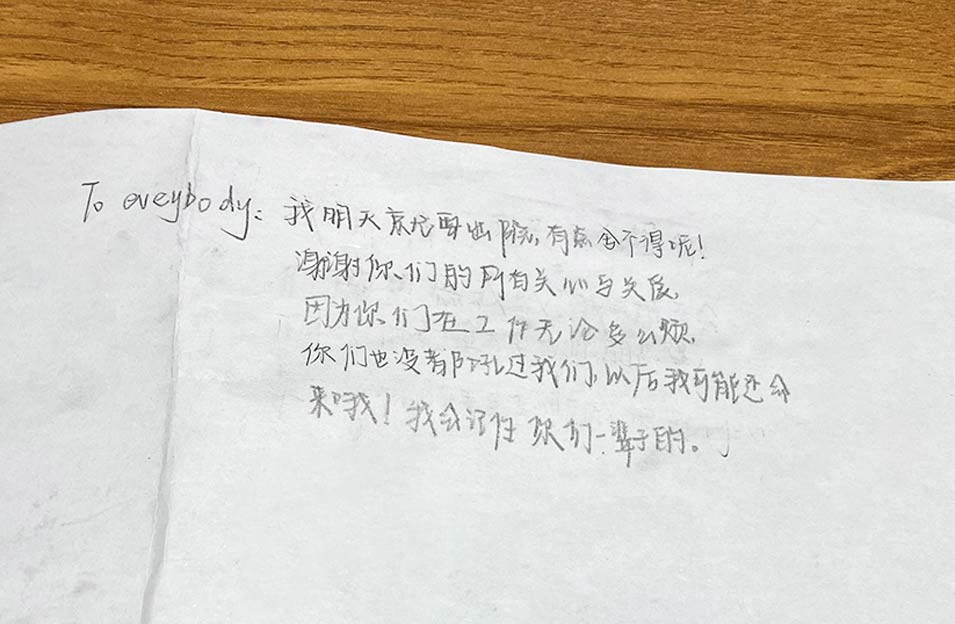 To eveybody: 我明天就要出院,有点舍不得呢!
谢谢你们的所有关心与关爱,
因为你们在工作无论多么烦,
你们也没有吼过我们,以后我可能还会
来哦!我会记住你们一辈子的。